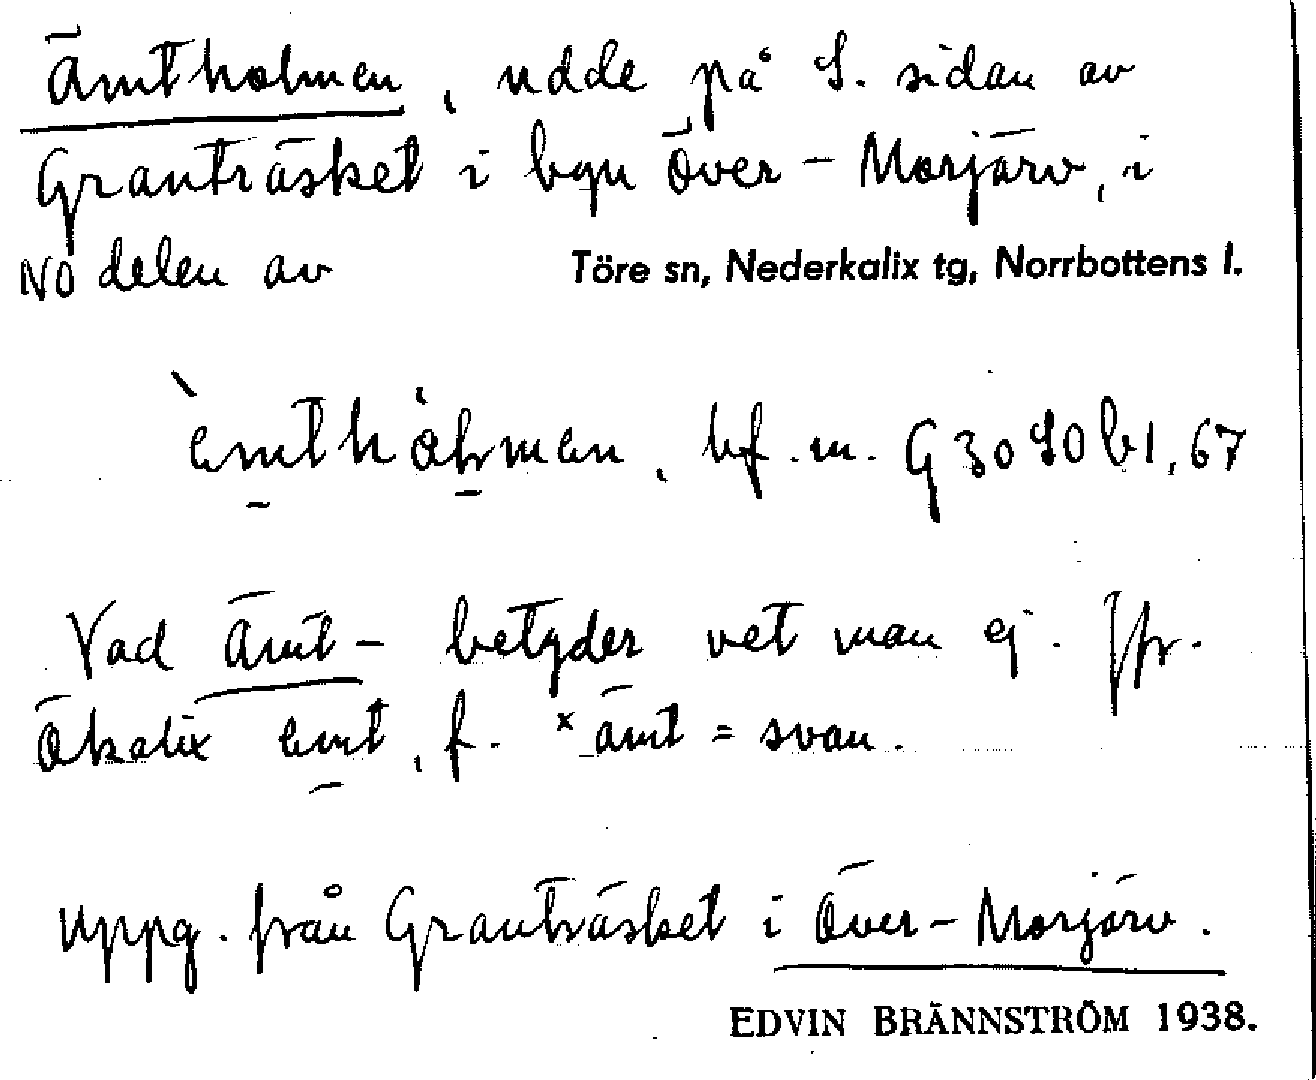 Ämtholmen, udde på S. sidan av
Granträsket i byn Över-Morjärv, i
NÖ delen av Töre sn, Nederkalix tg, Norrbottens l.
bf. m. G 3040 b1, 67
Vad Ämt- betyder vet man ej. Jfr.
Ökalix emt, f. *ämt = svan.
Uppg. från Granträsket i Över-Morjärv.
EDVIN BRÄNNSTRÖM 1938.